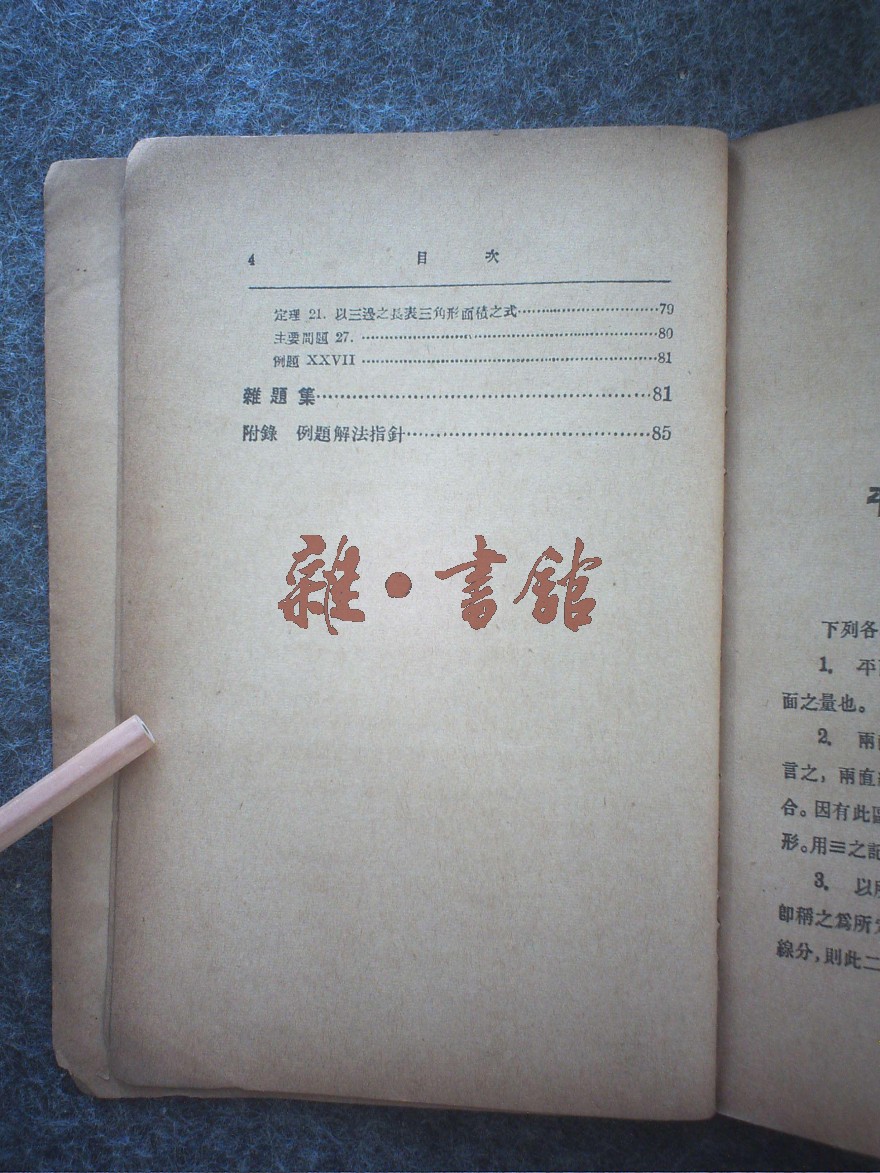 4 目 次
定理 21. 以三邊之長表三角形面積之式……………………79
主要問題 27. ……………………80
例題 XXVII ……………………81
雜 題 集……………………81
附錄 例題解法指針……………………85
雜·書館
下列各
1. 平
面之量也。
2. 兩
言之,兩直
合。因有此
形。用≡之記
3. 以
卽稱之爲所
線分,則此二